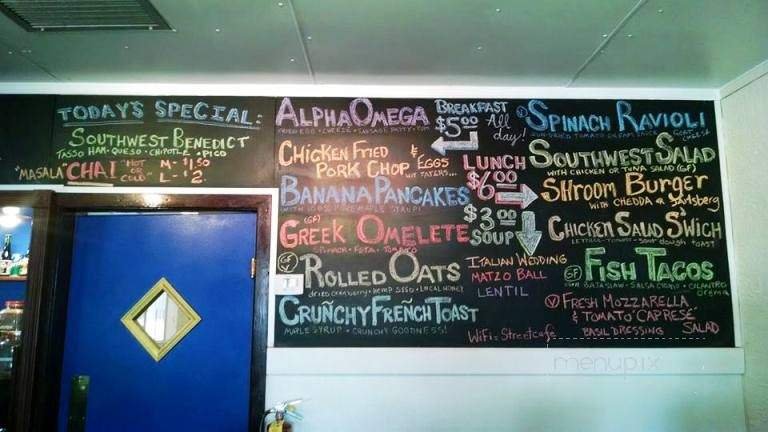 TODAY'S SPECIAL:
SOUTHWEST BENEDICT
TASSO HAM · QUESO · CHIPOTLE · PICO
"MASALA" CHAI "HOT OR COLD" M- $1.50
L- $2.
ALPHA OMEGA
FRIED EGG · CHEEZE · SAUSAGE PATTY · TOM
CHICKEN FRIED
PORK CHOP & EGGS
W/ TATERS...
BANANA PANCAKES
WITH 100% PURE MAPLE SYRUP!
(GF)
GREEK OMELETE
SPINACH · FETA · TOMATO
GF V
ROLLED OATS
dried cranberry · hemp seed · local honey
CRUÑCHY FRENCH TOAST
MAPLE SYRUP · CRUNCHY GOODNESS!
BREAKFAST
$5.00 All day!
LUNCH
$6.00
$3.00
SOUP
ITALIAN WEDDING
MATZO BALL
LENTIL
WiFi = Streetcafe
V
SPINACH RAVIOLI
SUN-DRIED TOMATO CREAM SAUCE
SOUTHWEST SALAD
WITH CHICKEN OR TUNA SALAD (GF)
SHROOM BURGER
WITH CHEDDA OR JARLSBERG
CHICKEN SALAD S'WICH
LETTUCE · TOMATO · sour dough TOAST
GF FISH TACOS
SALSA · CILANTRO
crema
V FRESH MOZZARELLA
& TOMATO "CAPRESE"
BASIL DRESSING SALAD
menupix